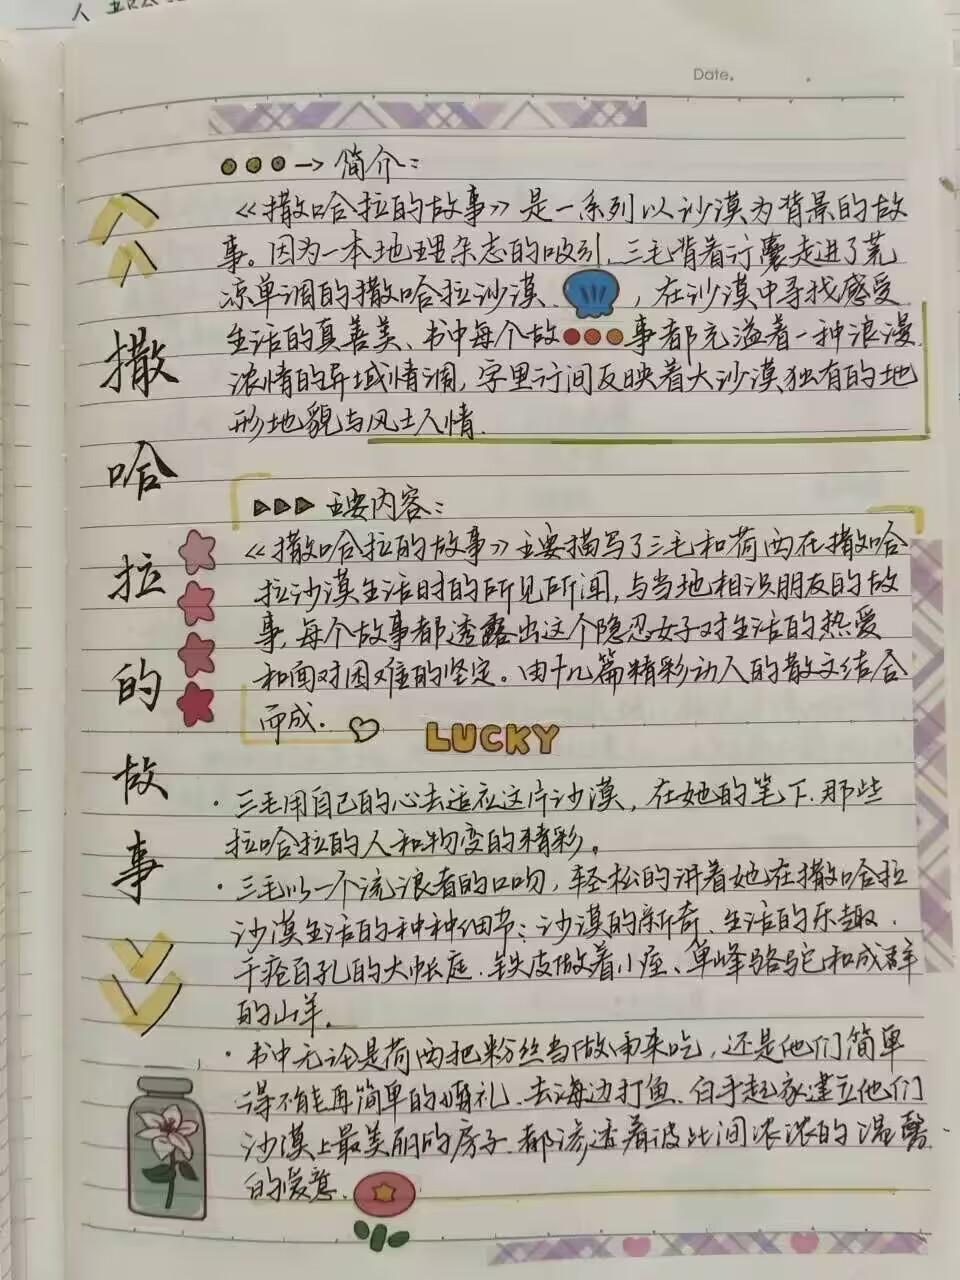 Date.
撒哈拉的故事
简介：
《撒哈拉的故事》是一系列以沙漠为背景的故
事。因为一本地理杂志的吸引，三毛背着行囊走进了荒
凉单调的撒哈拉沙漠、，在沙漠中寻找感受
生活的真善美、书中每个故事都充溢着一种浪漫、
浓情的异域情调，字里行间反映着大沙漠独有的地
形地貌与风土人情.
主要内容：
《撒哈拉的故事》主要描写了三毛和荷西在撒哈
拉沙漠生活时的所见所闻，与当地相识朋友的故
事，每个故事都透露出这个隐忍女子对生活的热爱
和面对困难的坚定。由十几篇精彩动人的散文结合
而成.
LUCKY
·三毛用自己的心去适应这片沙漠，在她的笔下.那些
拉哈拉的人和物变的精彩。
·三毛以一个流浪者的口吻，轻松的讲着她在撒哈拉
沙漠生活的种种细节：沙漠的新奇、生活的乐趣、
千疮百孔的大帐庭、铁皮做着小屋、单峰骆驼和成群
的山羊.
·书中无论是荷西把粉丝当做雨来吃，还是他们简单
得不能再简单的婚礼、去海边打鱼、白手起家建立他们
沙漠上最美丽的房子.都渗透着彼此间浓浓的温馨
的爱意.